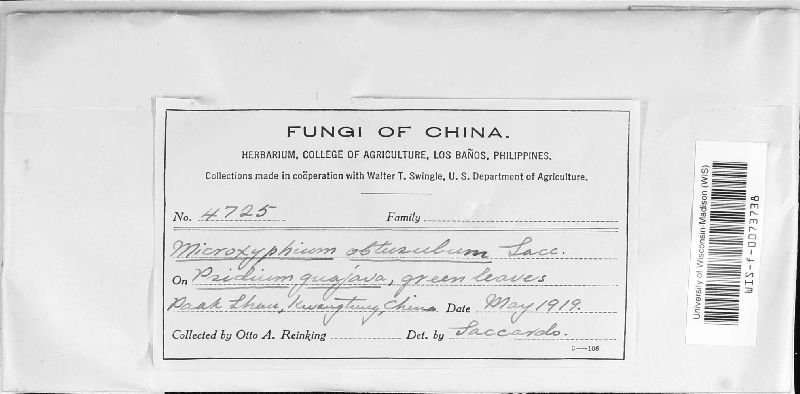 FUNGI OF CHINA.
HERBARIUM, COLLEGE OF AGRICULTURE, LOS BAÑOS, PHILIPPINES.
Collections made in coöperation with Walter T. Swingle, U. S. Department of Agriculture.
No. 4725 Family
Microxyphium obtusulum Sacc.
On Psidium guajava, green leaves
Paak Shau, Kwangtung, China Date May 1919.
Collected by Otto A. Reinking Det. by Saccardo.
5—106
University of Wisconsin-Madison (WIS)
WIS-f-0073738